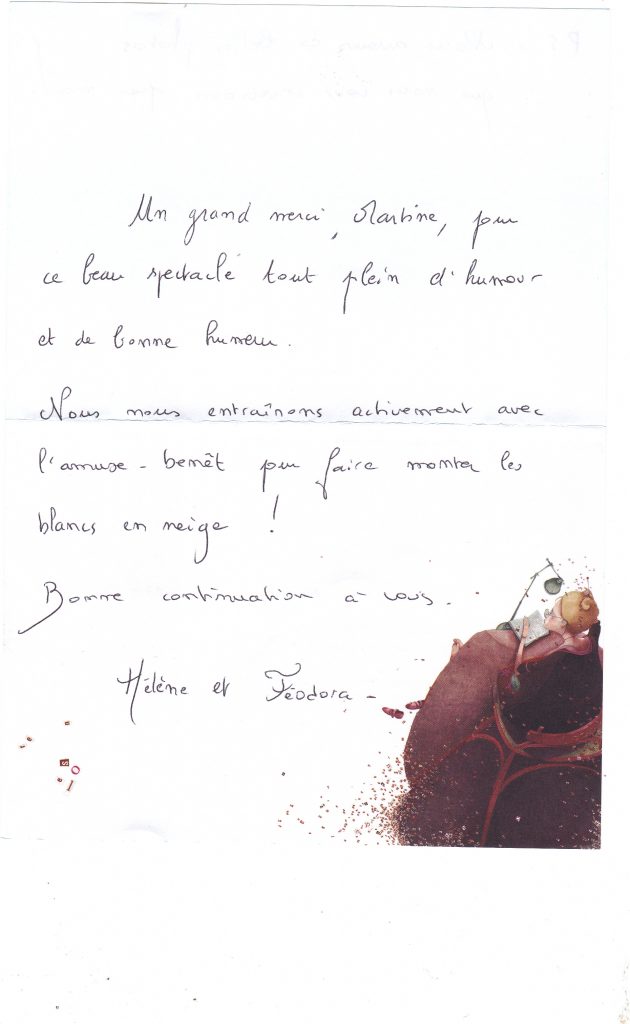 Un grand merci, Martine, pour
ce beau spectacle tout plein d'humour
et de bonne humeur.
Nous nous entraînons activement avec
l'amuse-benêt pour faire monter les
blancs en neige !
Bonne continuation à vous.
Hélène et Féodora -